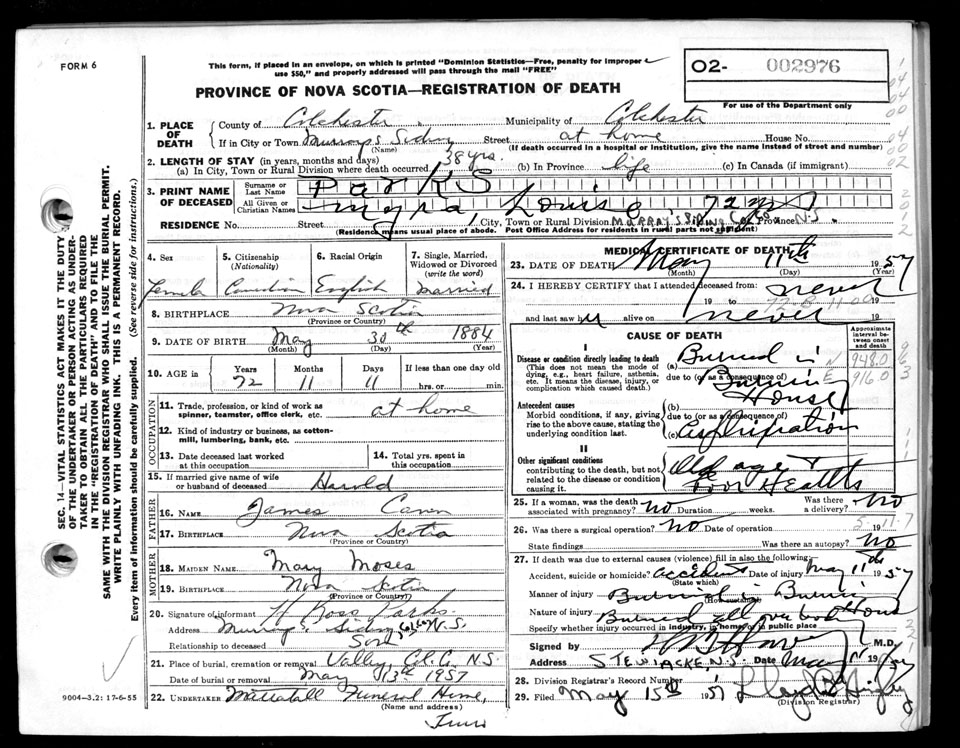 FORM 6
This form, if placed in an envelope, on which is printed "Dominion Statistics—Free, penalty for improper
use $50," and properly addressed will pass through the mail "FREE"
O2- 002976
PROVINCE OF NOVA SCOTIA—REGISTRATION OF DEATH
For use of the Department only
1. PLACE OF DEATH
County of Colchester Municipality of Colchester
If in City or Town Murrays Siding Street at home House No.
(Name) (If death occurred in a hospital or institution, give the name instead of street and number)
2. LENGTH OF STAY (in years, months and days)
(a) In City, Town or Rural Division where death occurred. 38 yrs. (b) In Province life (c) In Canada (if immigrant)
3. PRINT NAME OF DECEASED
Surname or Last Name Parks
All Given or Christian Names Myra Louise
RESIDENCE No. Street City, Town or Rural Division MURRAYS SIDING Col Co Province N.S.
(Residence means usual place of abode. Post Office Address for residents in rural parts not sufficient)
4. Sex
Female
5. Citizenship
(Nationality)
Canadian
6. Racial Origin
English
7. Single, Married, Widowed or Divorced
(write the word)
Married
8. BIRTHPLACE Nova Scotia
(Province or Country)
9. DATE OF BIRTH May 30th 1884
(Month) (Day) (Year)
10. AGE in Years Months Days If less than one day old
72 11 11 hrs. or min.
OCCUPATION
11. Trade, profession, or kind of work as
spinner, teamster, office clerk, etc. at home
12. Kind of industry or business, as cotton-
mill, lumbering, bank, etc.
13. Date deceased last worked
at this occupation
14. Total yrs. spent in
this occupation
15. If married give name of wife
or husband of deceased Harold
FATHER
16. NAME James
17. BIRTHPLACE Nova Scotia
(Province or Country)
MOTHER
18. MAIDEN NAME Mary Moses
19. BIRTHPLACE Nova Scotia
(Province or Country)
20. Signature of informant H Ross Parks.
Address Murrays Siding Col Co N.S.
Relationship to deceased Son
21. Place of burial, cremation or removal Valley, Col. Co. N.S.
Date of burial or removal May 13th 1957
22. UNDERTAKER Funeral Home,
(Name and address)
Truro
MEDICAL CERTIFICATE OF DEATH
23. DATE OF DEATH May 11th 1957
(Month) (Day) (Year)
24. I HEREBY CERTIFY that I attended deceased from: never
19 to 19
and last saw h alive on never 19
CAUSE OF DEATH
Approximate interval between onset and death
I
Disease or condition directly leading to death
(This does not mean the mode of
dying, e.g., heart failure, asthenia,
etc. It means the disease, injury, or
complication which caused death.)
(a) Burned in
due to (or as a consequence of)
Burning House
948.0
916.0
Antecedent causes
Morbid conditions, if any, giving
rise to the above cause, stating the
underlying condition last.
(b)
due to (or as a consequence of)
(c)
II
Other significant conditions
contributing to the death, but not
related to the disease or condition
causing it.
Old age &
Poor Health
25. If a woman, was the death
associated with pregnancy? no Duration weeks. Was there a delivery? no
26. Was there a surgical operation? no Date of operation
State findings Was there an autopsy? no
27. If death was due to external causes (violence) fill in also the following:—
Accident, suicide or homicide? accident Date of injury May 11th 1957
(State which)
Manner of injury Burned in Burning House
(How sustained)
Nature of injury Burned all over body
Specify whether injury occurred in industry, in home, or in public place
Signed by M.D.
Address STEWIACKE, N.S. Date May 11 1957
28. Division Registrar's Record Number
29. Filed May 15th 1957 Lloyd
(Division Registrar)
SEC. 14—VITAL STATISTICS ACT MAKES IT THE DUTY
OF THE UNDERTAKER OR PERSON ACTING AS UNDER-
TAKER TO OBTAIN ALL THE PARTICULARS REQUIRED
IN THE "REGISTRATION OF DEATH" AND TO FILE THE
SAME WITH THE DIVISION REGISTRAR WHO SHALL ISSUE THE BURIAL PERMIT.
WRITE PLAINLY WITH UNFADING INK. THIS IS A PERMANENT RECORD.
Every item of Information should be carefully supplied. (See reverse side for instructions.)
9004—3.2: 17-6-55